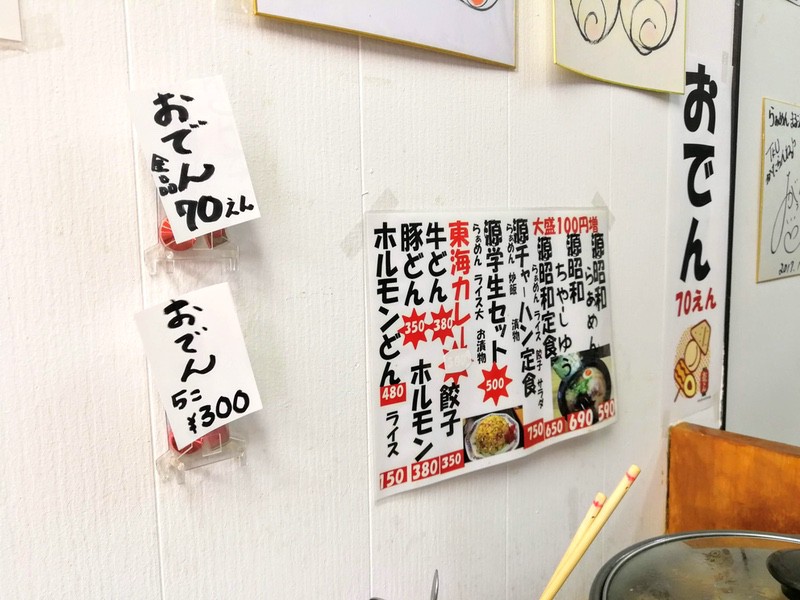 おでん
全品
70えん
おでん
5こ
¥300
大盛100円増
源昭和
らぁめん
590
源昭和
ちゃーしゅう
690
源昭和定食
らぁめん ライス 餃子 サラダ
650
源チャーハン定食
らぁめん 炒飯 漬物
750
源学生セット
らぁめん ライス大 お漬物
500
東海カレー
餃子
350
牛どん
380
ホルモン
380
豚どん
350
ホルモンどん
480
ライス
150
おでん
70えん
らぁめん
2017.1